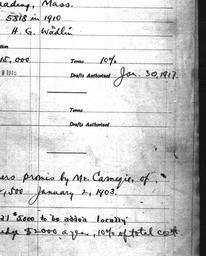 eading, Mass.
5818 in 1910
H. G. Wadlin
tion
15,000 Terms 10%
1910 Drafts Authorised Jan. 30, 1917.
Terms
Drafts Authorised
ers promis by Mr. Carnegie, of
,500 January 2, 1903.
al $5000 to be added locally
edge $2000 a year, 10% of total cost